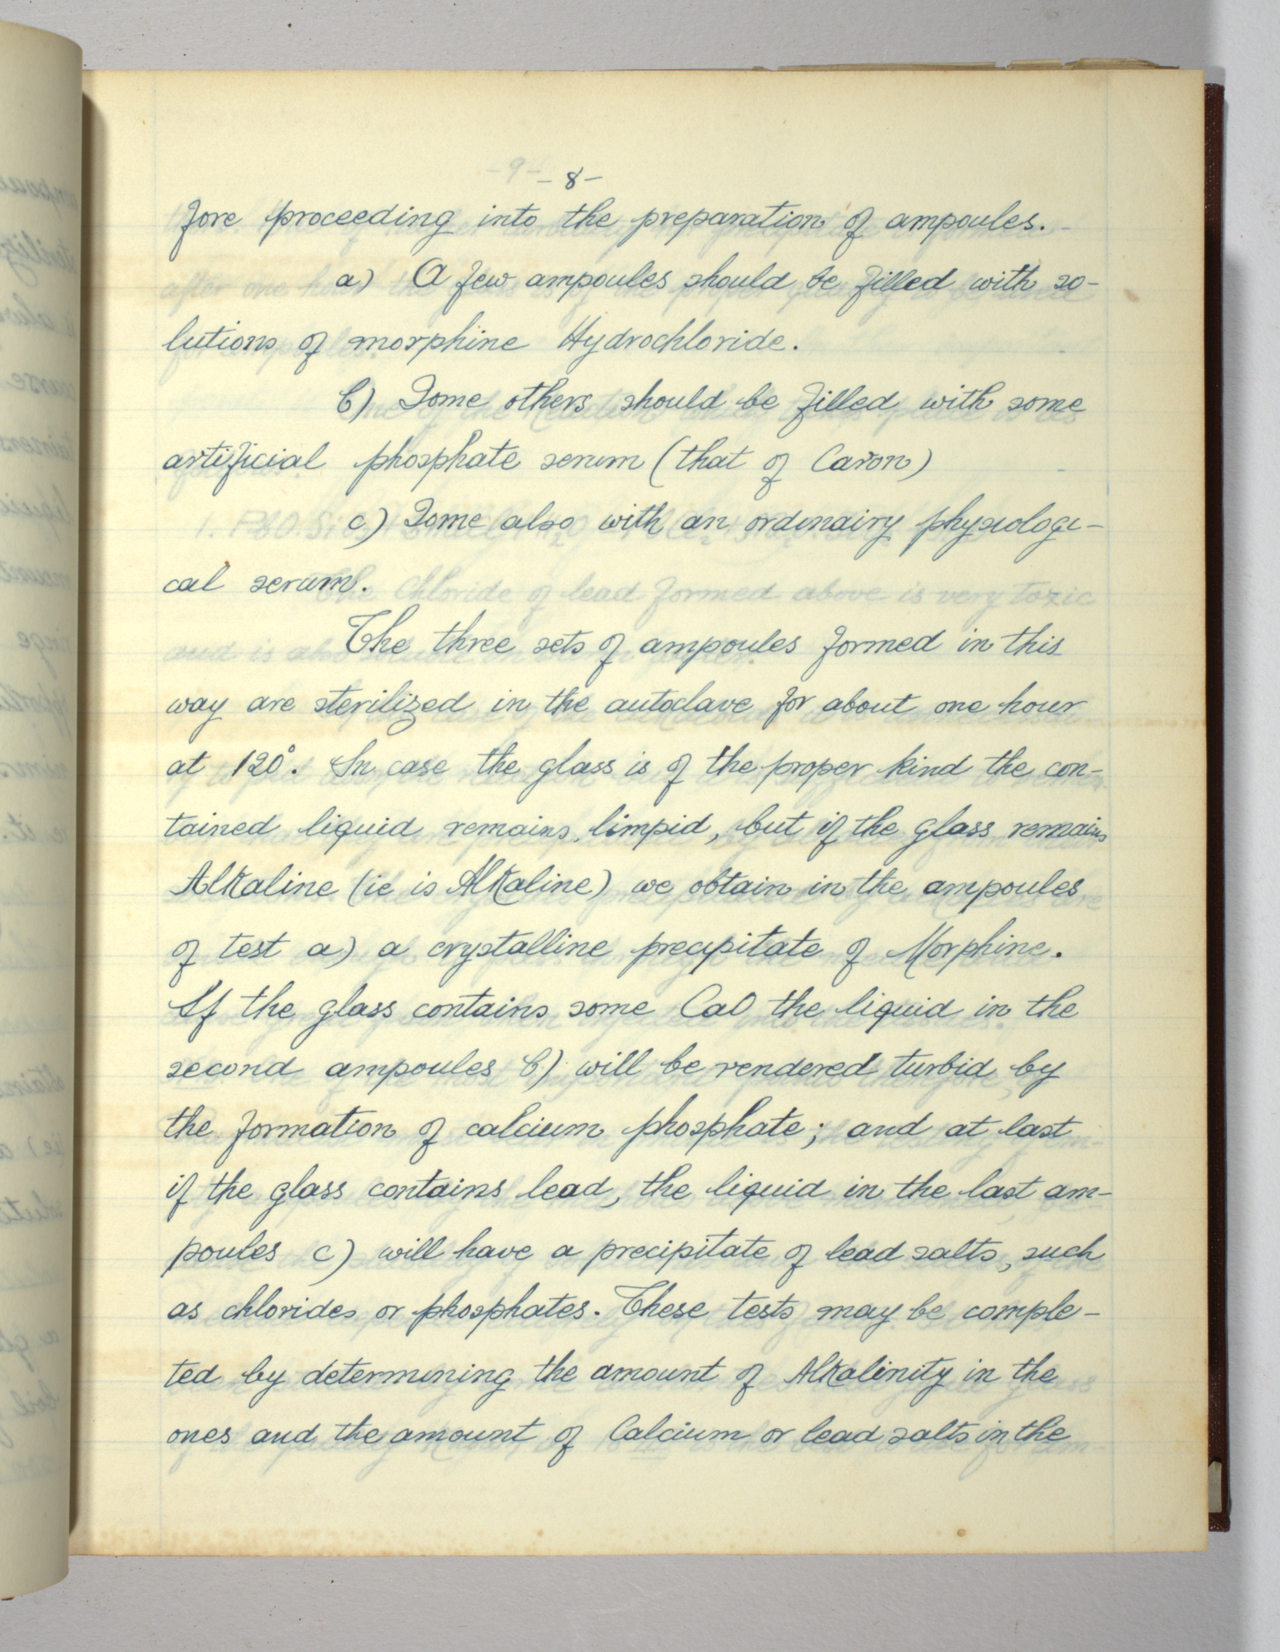 - 8 -
fore proceeding into the preparation of ampoules.
a) A few ampoules should be filled with so-
lutions of morphine Hydrochloride.
b) Some others should be filled with some
artificial phosphate serum (that of Caron)
c) Some also with an ordinairy physiologi-
cal serum.
The three sets of ampoules formed in this
way are sterilized in the autoclave for about one hour
at 120°. In case the glass is of the proper kind the con-
tained liquid remains limpid, but if the glass remains
Alkaline (ie is Alkaline) we obtain in the ampoules
of test a) a crystalline precipitate of Morphine.
If the glass contains some CaO the liquid in the
second ampoules b) will be rendered turbid by
the formation of calcium phosphate; and at last
if the glass contains lead, the liquid in the last am-
poules c) will have a precipitate of lead salts, such
as chlorides or phosphates. These tests may be comple-
ted by determining the amount of Alkalinity in the
ones and the amount of Calcium or lead salts in the